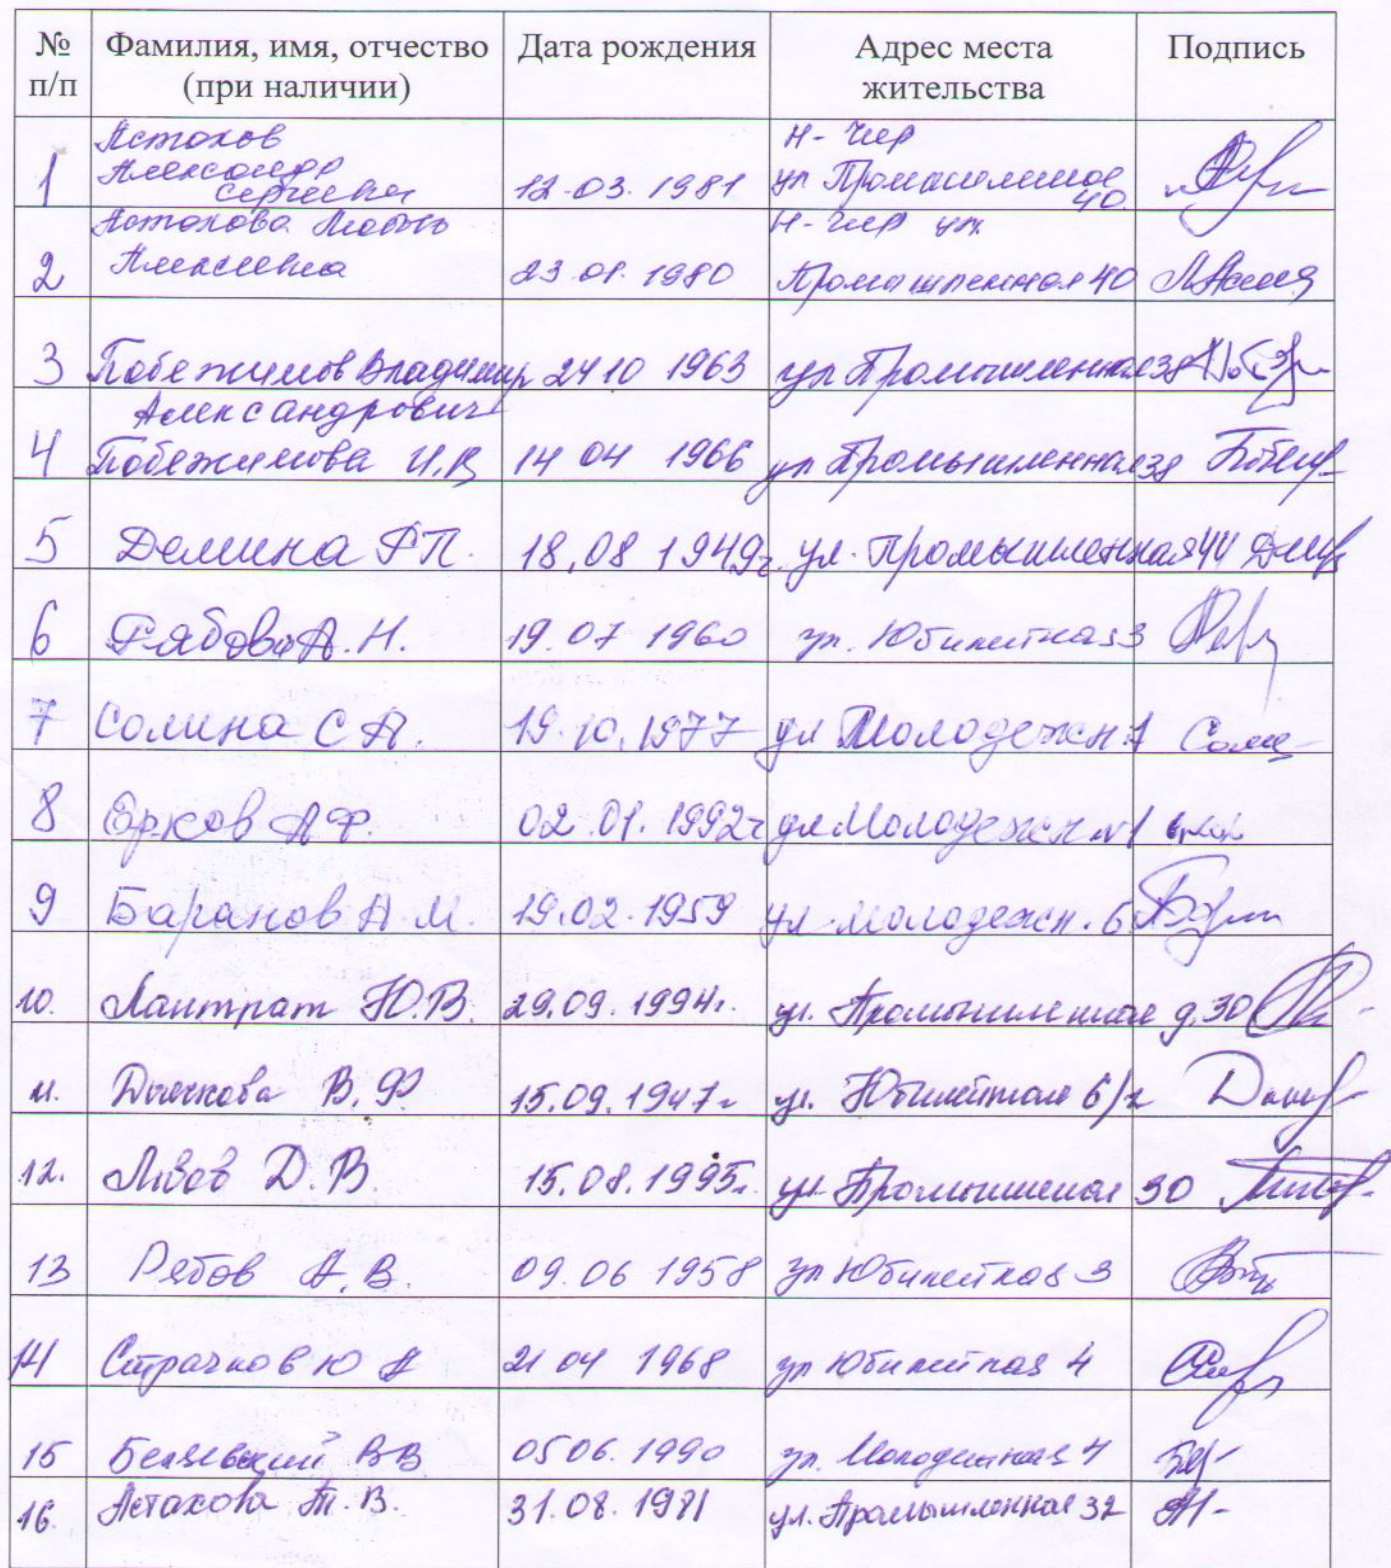 № п/п Фамилия, имя, отчество (при наличии) Дата рождения Адрес места жительства Подпись
1 Астахов Александр Сергеевич 12.03.1981 Н-Чир ул Промышленная 40
2 Астахова Любовь Алексеевна 23.08.1980 Н-Чир ул. Промышленная 40
3 Побежимов Владимир Александрович 24 10 1963 ул Промышленная 38
4 Побежимова И.В 14 04 1966 ул Промышленная 38
5 Демина Р П. 18.08 1949г. ул. Промышленная 44
6 Рябова А.Н. 19.07 1960 ул. Юбилейная 3
7 Солина С А. 19.10.1977 ул Молодежн. 1
8 Ярков А Ф. 02.01.1992г ул Молодежн 1
9 Баранов А.М. 19.02.1959 ул. Молодежн. 6
10. Лантрат Ю.В. 29.09.1994г. ул. Промышленная д. 30
11. В.Ф. 15.09.1947г ул. Юбилейная 6/2
12. Львов Д.В. 15.08.1995г. ул. Промышленная 30
13 Рябов А.В. 09.06 1958 ул Юбилейная 3
14 Страчков Ю А 21 04 1968 ул Юбилейная 4
15 Беляевский В В 05 06.1990 ул. Молодежная 4
16. Астахова Т.В. 31.08.1981 ул. Промышленная 32